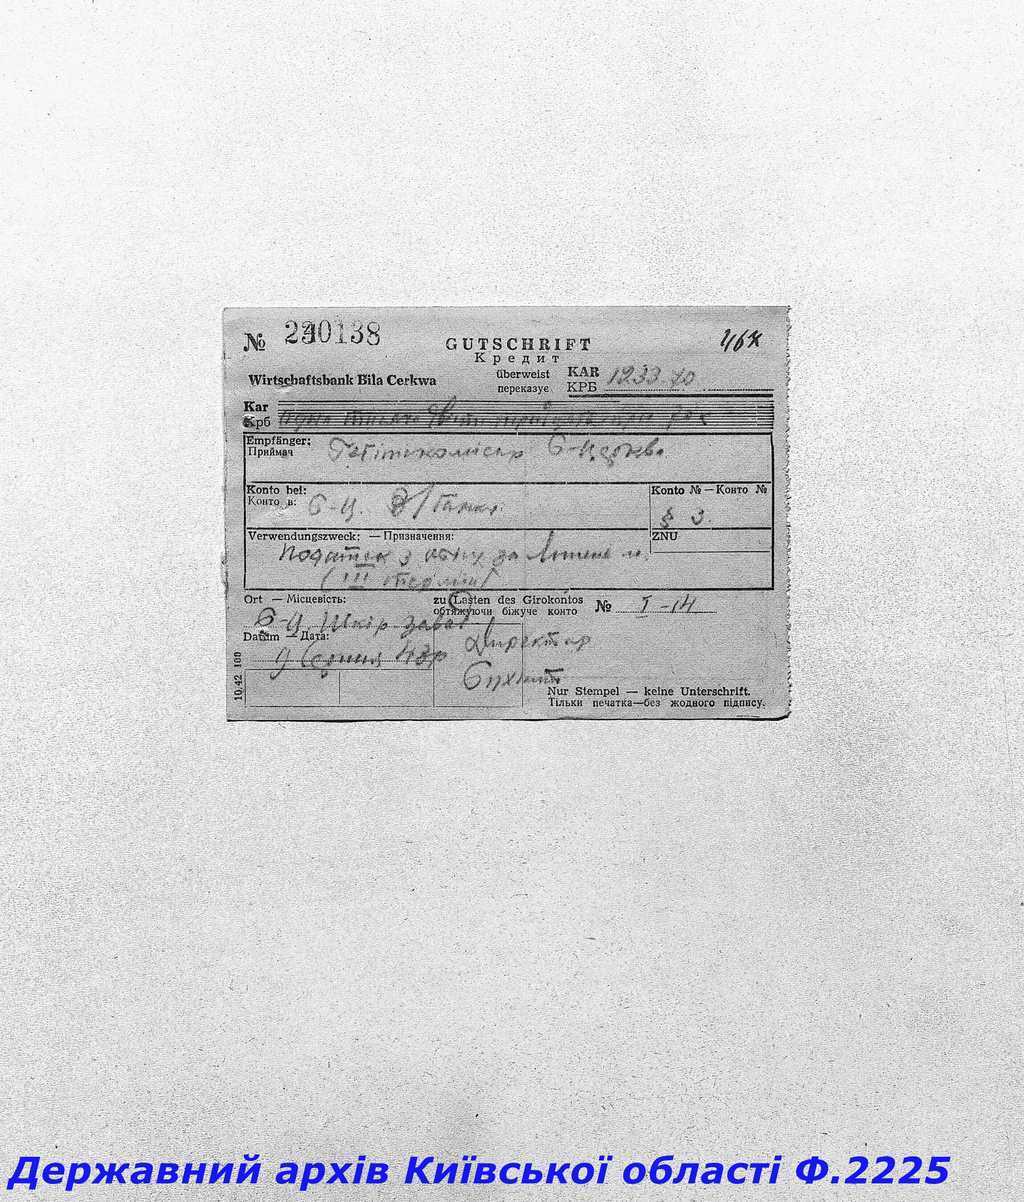 № 230138
GUTSCHRIFT
Кредит
467
Wirtschaftsbank Bila Cerkwa
überweist
переказує
KAR
КРБ 1233 70
Kar
Крб одна тисяча двісті тридцять три 70 к
Empfänger:
Приймач Гебітскомісар Б-Церква
Konto bei:
Конто в: Б-Ц. В/банк.
Konto № — Конто №
§ 3.
Verwendungszweck: — Призначення:
ZNU
Податок з обігу за Липень м.
(III термін)
Ort — Місцевість:
Б-Ц. Шкір завод
zu Lasten des Girokontos
обтяжуючи біжуче конто № I-14
Datum — Дата:
9 Серпня 43р
Директор
10.42 100
Nur Stempel — keine Unterschrift.
Тільки печатка—без жодного підпису.
Державний архів Київської області Ф.2225